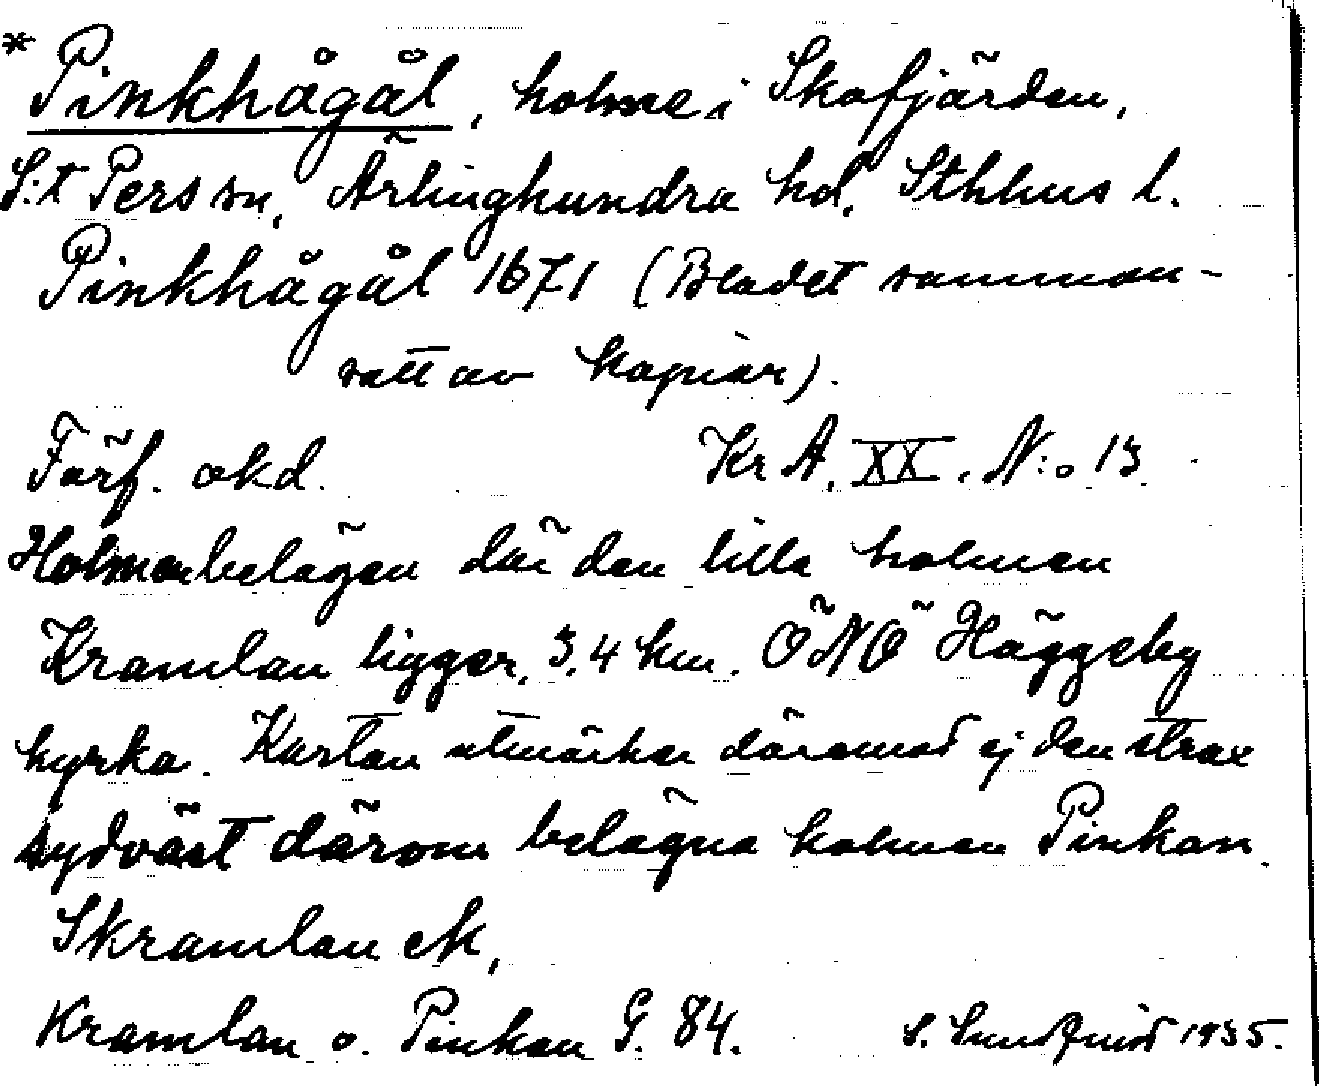 * Pinkhågål, holme i Skofjärden,
S:t Pers sn, Ärlinghundra hd, Sthlms l.
Pinkhågål 1671 (Bladet samman-
satt av kopior).
Förf. okd. Kr A. XX. N:o 13
Holmen belägen där den lilla holmen
Kramlan ligger, 3.4 km. ÖNÖ Häggeby
kyrka. Kartan utmärker däremot ej den strax
sydväst därom belägna holmen Pinkan.
Skramlan ek,
Kramlan o. Pinkan G. 84. S. Sundqvist 1935.